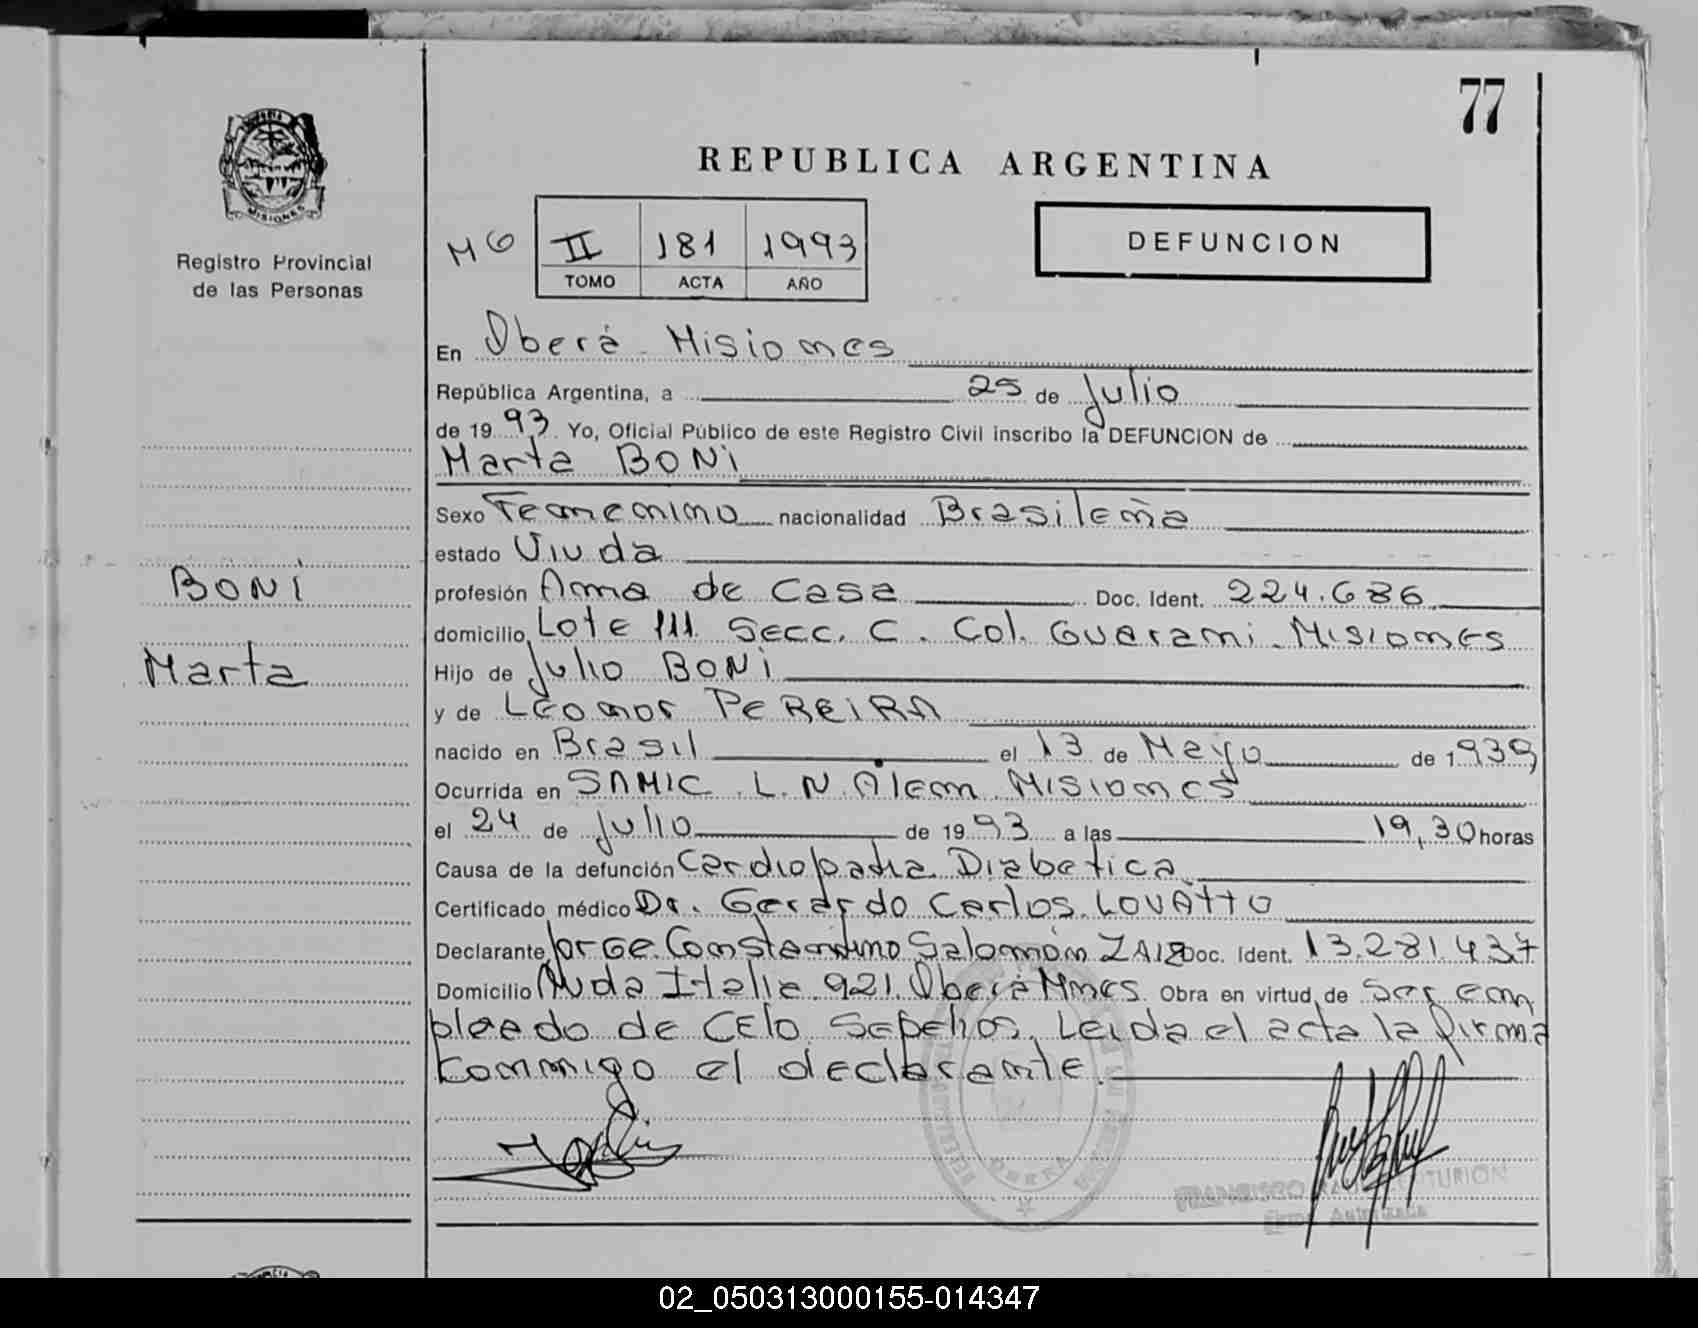 77
REPUBLICA ARGENTINA
MISIONES
Registro Provincial
de las Personas
M6
II 181 1993
TOMO ACTA AÑO
DEFUNCION
En Oberá - Misiones
República Argentina, a 25 de Julio
de 1993. Yo, Oficial Público de este Registro Civil inscribo la DEFUNCION de
Marta BONI
Sexo Femenino nacionalidad Brasileña
estado Viuda
BONI
Marta
profesión Ama de Casa Doc. Ident. 224.686
domicilio Lote 111 Secc. C. Col. Guarani - Misiones
Hijo de Julio BONI
y de Leonor PEREIRA
nacido en Brasil el 13 de Mayo de 1939
Ocurrida en SAMIC. L.N. Alem Misiones
el 24 de Julio de 1993 a las 19,30 horas
Causa de la defunción Cardiopatia Diabetica
Certificado médico Dr. Gerardo Carlos LOVATTO
Declarante Jorge Constantino Salomón Doc. Ident. 13.281.437
Domicilio Avda Italia 921. Oberá Mnes. Obra en virtud de Ser em
pleado de CELO Sepelios. Leida el acta la firma
conmigo el declarante.
OBERA
02_050313000155-014347